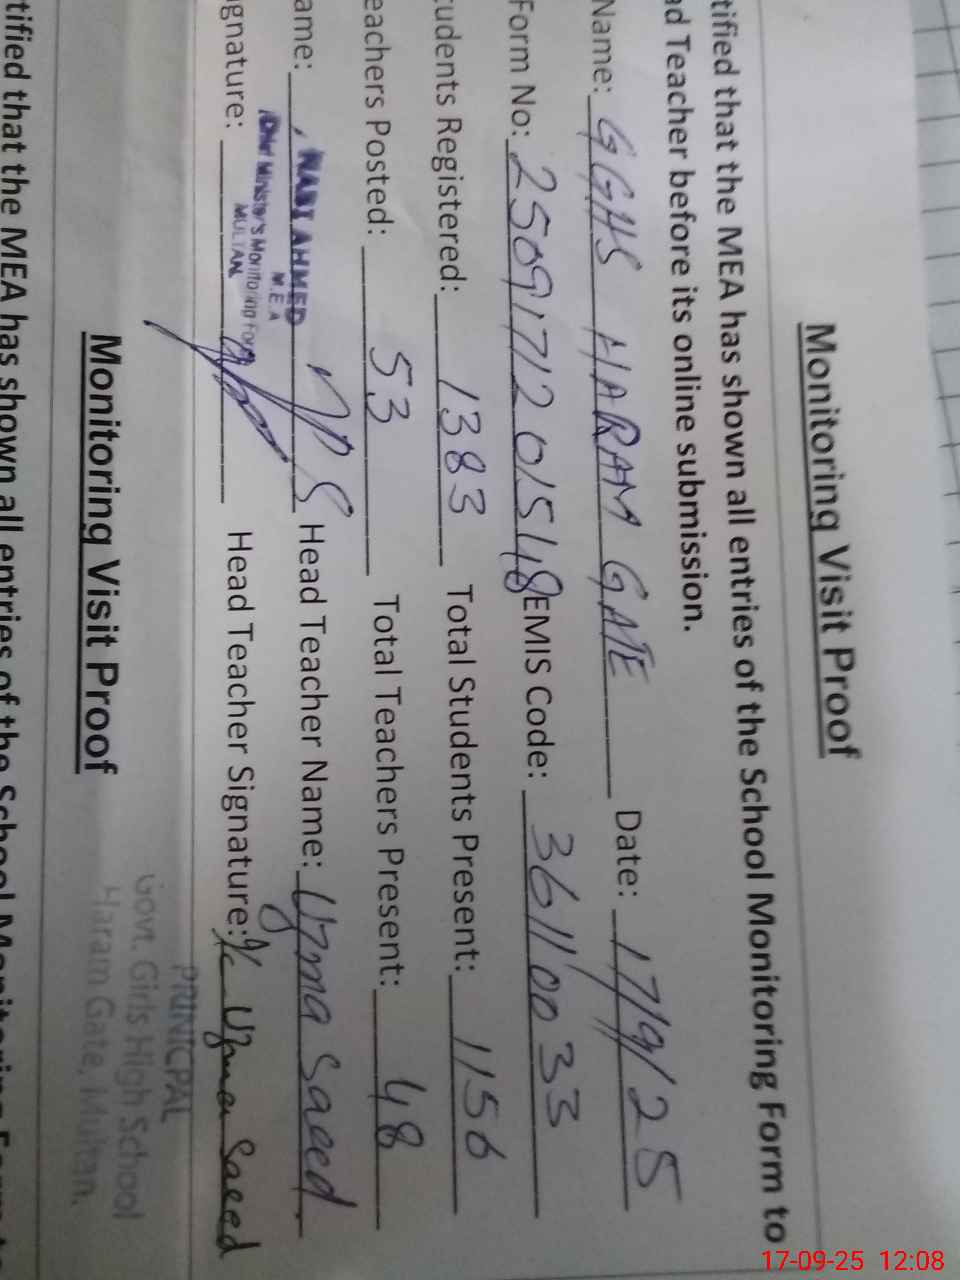 Monitoring Visit Proof
tified that the MEA has shown all entries of the School Monitoring Form to
ad Teacher before its online submission.
Name: GGHS HARAM GATE Date: 17/9/25
Form No: 2509171201548 EMIS Code: 36110033
tudents Registered: 1383 Total Students Present: 1156
eachers Posted: 53 Total Teachers Present: 48
ame: NABI AHMED Head Teacher Name: Uzma Saeed.
M.E.A
Chief Minister's Monitoring Force
MULTAN
ignature: Head Teacher Signature: I/c Uzma Saeed
PRINICPAL
Govt. Girls High School
Haram Gate, Multan.
Monitoring Visit Proof
tified that the MEA has shown all entries of the School Monitoring Form to
17-09-25 12:08